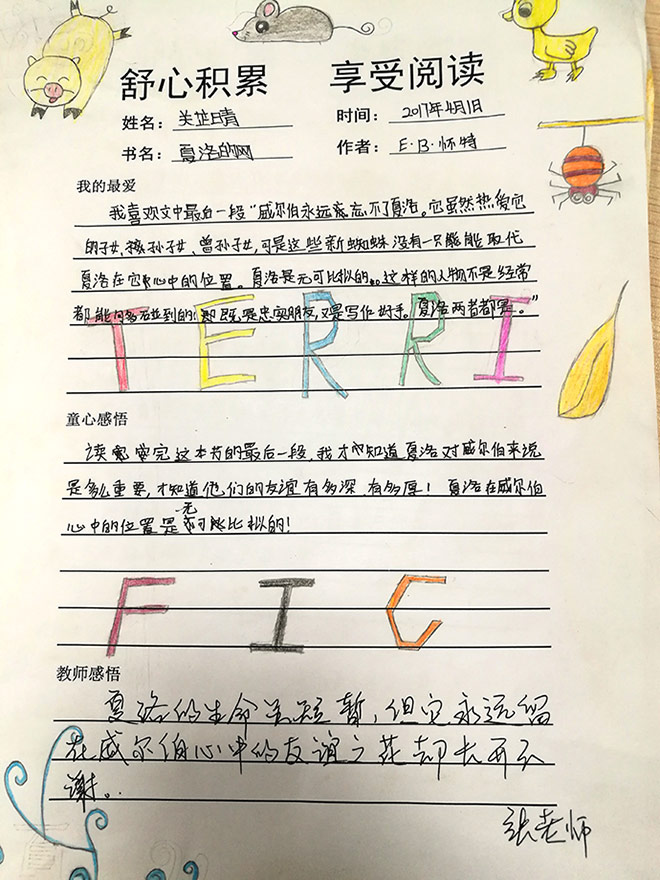 舒心积累 享受阅读
姓名：关芷晴 时间：2017年4月1日
书名：夏洛的网 作者：E·B·怀特
我的最爱
我喜欢文中最后一段“威尔伯永远忘不了夏洛。它虽然热爱它
的子女、孙子女、曾孙子女，可是这些新蜘蛛没有一只能能取代
夏洛在它心中的位置。夏洛是无可比拟的。这样的人物不是经常
都能碰到的：既是忠实朋友，又是写作好手。夏洛两者都是。”
TERRI
童心感悟
读完这本书的最后一段，我才知道夏洛对威尔伯来说
是多么重要，才知道他们的友谊有多深，有多厚！夏洛在威尔伯
心中的位置是无可比拟的！
FIC
教师感悟
夏洛的生命虽短暂，但它永远留
在威尔伯心中的友谊之花却长开不
谢。
张老师